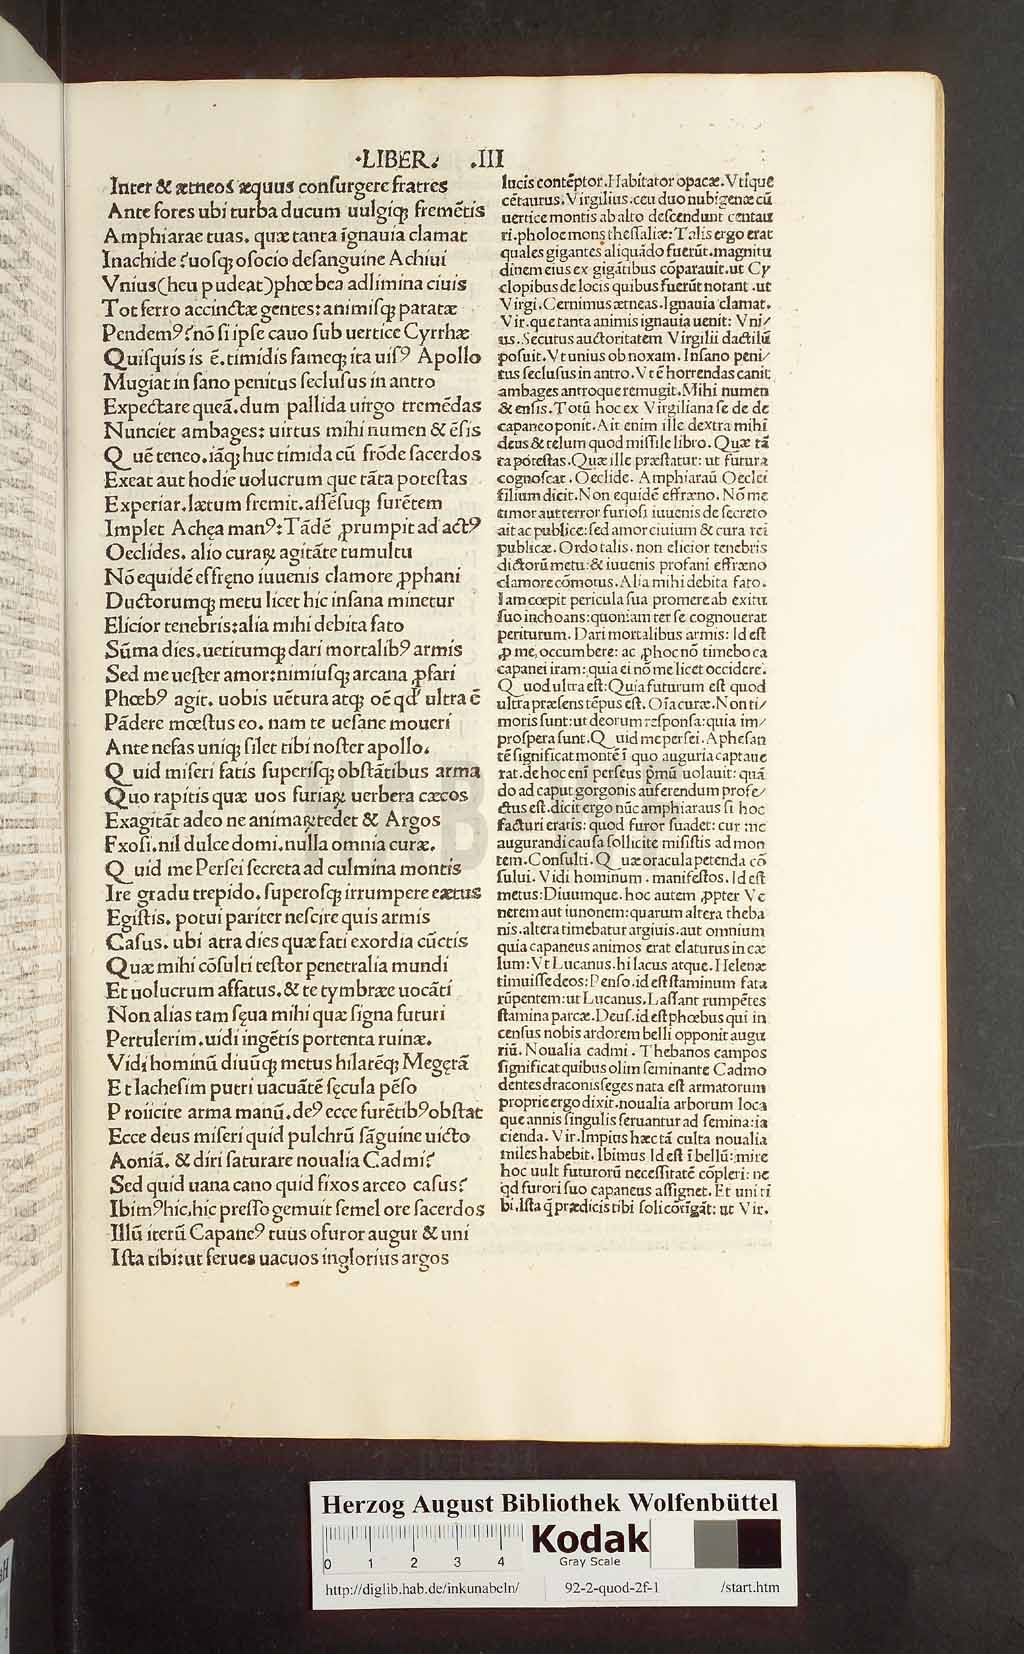 ·LIBER. .III
Inter & ætneos æquus consurgere fratres
Ante fores ubi turba ducum uulgiqꝫ fremẽtis
Amphiarae tuas. quæ tanta ĩgnauia clamat
Inachide? uosqꝫ o socio de sanguine Achiui
Vnius (heu pudeat) phœbea ad limina ciuis
Tot ferro accinctæ gentes: animisqꝫ paratæ
Pendemꝰ? nõ si ipse cauo sub uertice Cyrrhæ
Quisquis is ẽ. timidis fameqꝫ ita uisꝰ Apollo
Mugiat in sano penitus seclusus in antro
Expectare queã. dum pallida uirgo tremẽdas
Nunciet ambages: uirtus mihi numen & ẽsis
Quẽ teneo. iãqꝫ huc timida cũ frõde sacerdos
Exeat aut hodie uolucrum que tãta potestas
Experiar. lætum fremit. assẽsuqꝫ furẽtem
Implet Achęa manꝰ: Tãdẽ ꝓrumpit ad actꝰ
Oeclides. alio curaꝝ agitãte tumultu
Nõ equidẽ effręno iuuenis clamore ꝓphani
Ductorumqꝫ metu licet hic insana minetur
Elicior tenebris: alia mihi debita fato
Sũma dies. uetitumqꝫ dari mortalibꝰ armis
Sed me uester amor: nimiusqꝫ arcana ꝓfari
Phœbꝰ agit. uobis uẽtura atqꝫ oẽ qd' ultra ẽ
Pãdere mœstus eo. nam te uesane moueri
Ante nefas uniqꝫ silet tibi noster apollo.
Quid miseri fatis superisqꝫ obstãtibus arma
Quo rapitis quæ uos furiaꝝ uerbera cæcos
Exagitãt adeo ne animaꝝ tedet & Argos
Fxosi. nil dulce domi. nulla omnia curæ.
Quid me Persei secreta ad culmina montis
Ire gradu trepido. superosqꝫ irrumpere cætus
Egistis. potui pariter nescire quis armis
Casus. ubi atra dies quæ fati exordia cũctis
Quæ mihi cõsulti testor penetralia mundi
Et uolucrum affatus. & te tymbræe uocãti
Non alias tam sęua mihi quæ signa futuri
Pertulerim. uidi ingẽtis portenta ruinæ.
Vidi hominũ diuũqꝫ metus hilarẽqꝫ Megęrã
Et lachesim putri uacuãtẽ sęcula pẽso
Proiicite arma manũ. deꝰ ecce furẽtibꝰ obstat
Ecce deus miseri quid pulchrũ sãguine uicto
Aoniã. & diri saturare noualia Cadmi?
Sed quid uana cano quid fixos arceo casus?
Ibimꝰ hic, hic presso gemuit semel ore sacerdos
Illũ iterũ Capaneꝰ tuus o furor augur & uni
Ista tibi: ut serues uacuos inglorius argos
lucis contẽptor. Habitator opacæ. Vtique
cẽtaurus. Virgilius. ceu duo nubigenæ cũ
uertice montis ab alto descendunt centau
ri. pholoe mons thessaliæ: Talis ergo erat
quales gigantes aliquãdo fuerũt. magnitu
dinem eius ex gigãtibus cõparauit. ut Cy
clopibus de locis quibus fuerũt notant. ut
Virgi. Cernimus ætneas. Ignauia clamat.
Vir. que tanta animis ignauia uenit: Vni/
us. Secutus auctoritatem Virgilii dactilũ
posuit. Vt unius ob noxam. Insano peni/
tus seclusus in antro. Vt ẽ horrendas canit
ambages antroque remugit. Mihi numen
& ensis. Totũ hoc ex Virgiliana se de de
capaneo ponit. Ait enim ille dextra mihi
deus & telum quod missile libro. Quæ tã
ta potestas. Quæ ille præstatur: ut futura
cognoscat. Oeclide. Amphiaraũ Oeclei
filium dicit. Non equidẽ effræno. Nõ me
timor aut terror furiosi iuuenis de secreto
ait ac publice: sed amor ciuium & cura rei
publicæ. Ordo talis. non elicior tenebris
dictorũ metu: & iuuenis profani effræno
clamore cõmotus. Alia mihi debita fato.
Iam cœpit pericula sua promere ab exitu
suo inchoans: quoniam ter se cognouerat
periturum. Dari mortalibus armis: Id est
ꝓ me, occumbere: ac ꝓ hoc nõ timebo ca
capanei iram: quia ei nõ me licet occidere.
Quod ultra est: Quia futurum est quod
ultra præsens tẽpus est. Oĩa curæ. Non ti/
moris sunt: ut deorum responsa: quia im/
prospera sunt. Quid me persei. Aphesan
tẽ significat montẽ ĩ quo auguria captaue
rat. de hoc enĩ perseus pꝛmũ uolauit: quã
do ad caput gorgonis auferendum profe/
ctus est. dicit ergo nũc amphiaraus si hoc
facturi eratis: quod furor suadet: cur me
augurandi causa sollicite misistis ad mon
tem. Consulti. Quæ oracula petenda cõ
sului. Vidi hominum. manifestos. Id est
metus: Diuumque. hoc autem ꝓpter Ve
nerem aut iunonem: quarum altera theba
nis. altera timebatur argiuis. aut omnium
quia capaneus animos erat elaturus in cæ
lum: Vt Lucanus. hi lacus atque. Helenæ
timuisse deos: Penso. id est staminum fata
rũpentem: ut Lucanus. Lassant rumpẽtes
stamina parcæ. Deus. id est phœbus qui in
census nobis ardorem belli opponit augu
riũ. Noualia cadmi. Thebanos campos
significat quibus olim seminante Cadmo
dentes draconis seges nata est armatorum
proprie ergo dixit. noualia arborum loca
que annis singulis seruantur ad semina: ia
cienda. Vir. Impius hæc tã culta noualia
miles habebit. Ibimus Id est ĩ bellũ: mire
hoc uult futurorũ necessitatẽ cõpleri: ne
qd furori suo capaneus assignet. Et uni ti
bi. Ista q̃ prædicis tibi soli cõtĩgãt: ut Vir.
HAB
Herzog August Bibliothek Wolfenbüttel
0 1 2 3 4
Kodak
Gray Scale
http://diglib.hab.de/inkunabeln/ 92-2-quod-2f-1 /start.htm